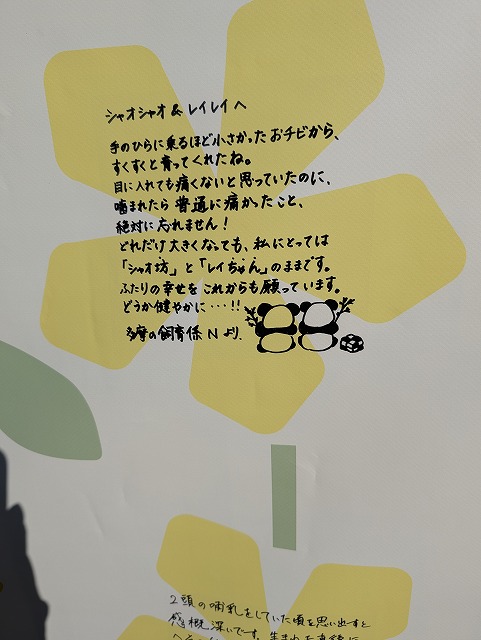 シャオシャオ & レイレイ へ
手のひらに乗るほど小さかったおチビから、
すくすくと育ってくれたね。
目に入れても痛くないと思っていたのに、
噛まれたら普通に痛かったこと、
絶対に忘れません!
どれだけ大きくなっても、私にとっては
「シャオ坊」と「レイちゃん」のままです。
ふたりの幸せをこれからも願っています。
どうか健やかに・・・!!
多摩の飼育係 N より.
2頭の哺乳をしていた頃を思い出すと
感慨深いです。生まれた直後に